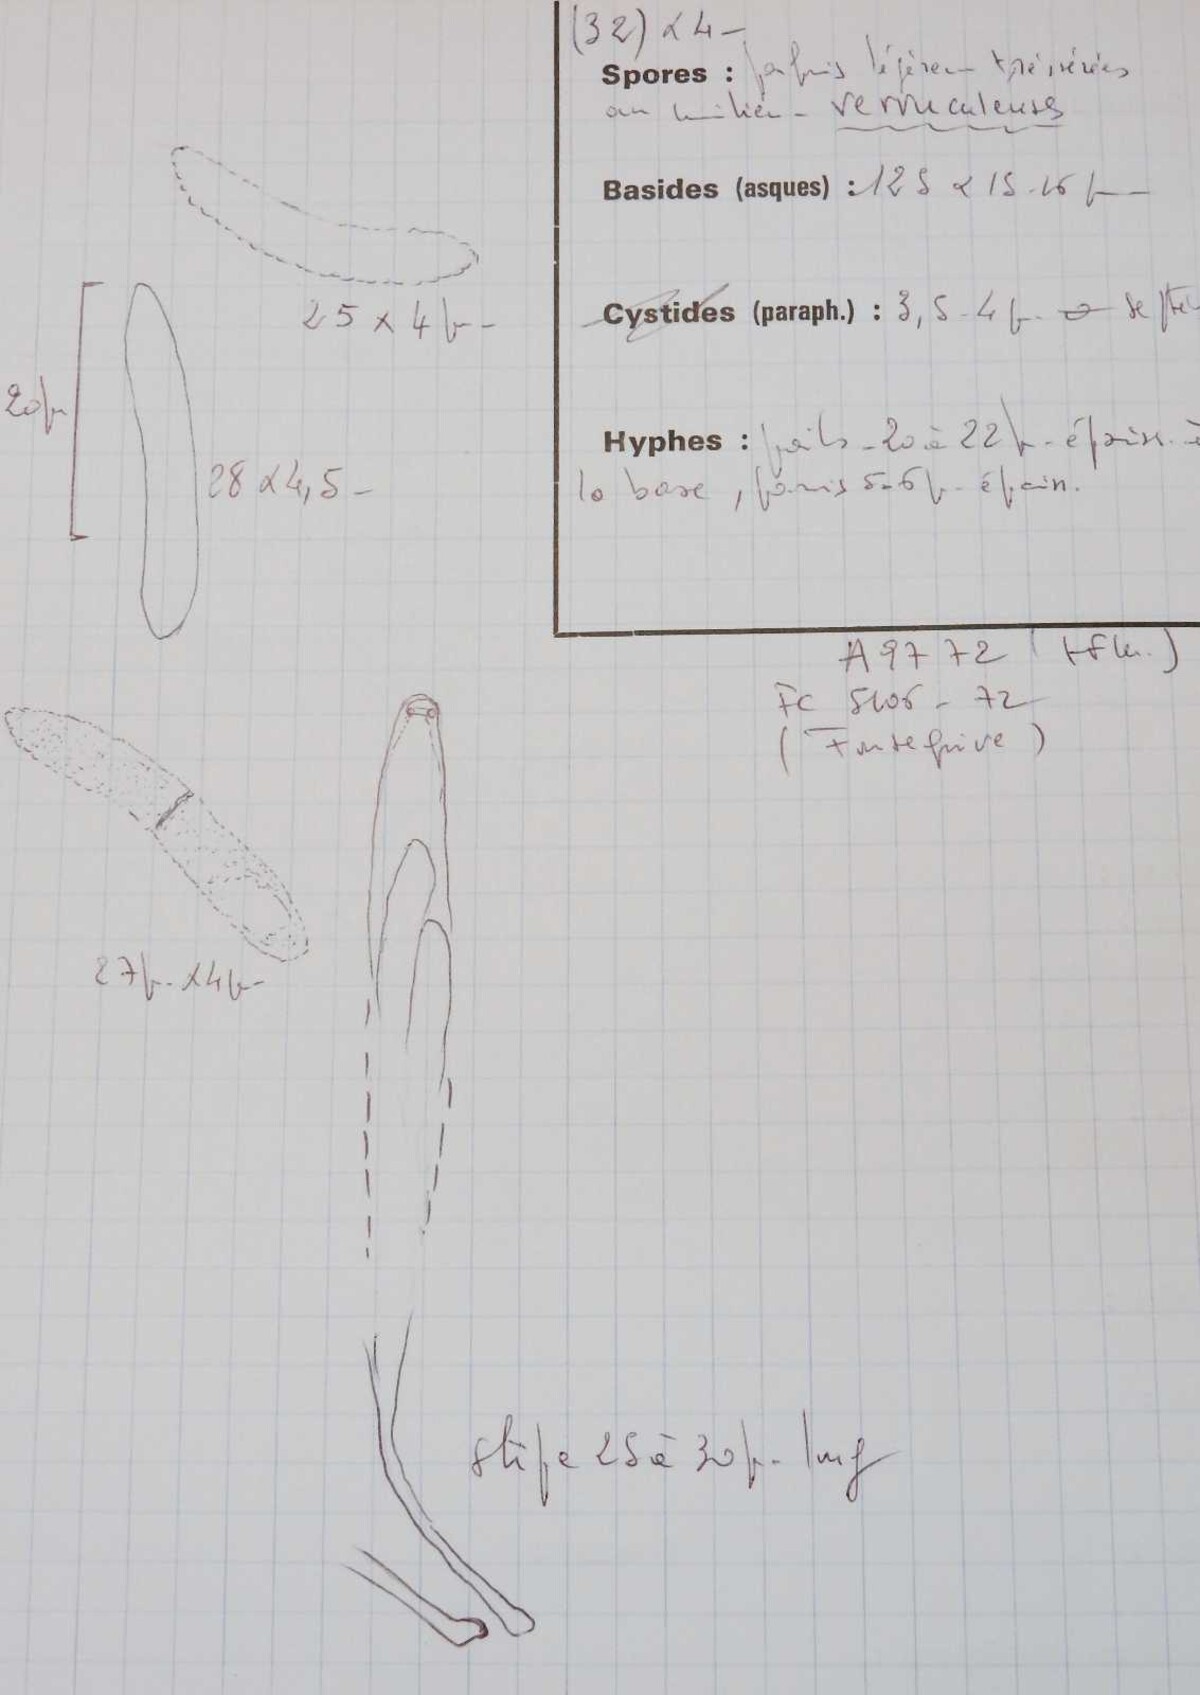 (32) x 4 -
Spores : parfois légèrem
au milieu - verruculeuses
Basides (asques) : 125 x 15-16 µ -
25 x 4 µ -
Cystides (paraph.) : 3,5-4 µ
20 µ
Hyphes : poils - 20 à 22 µ - épaiss. à
28 x 4,5 -
la base, parois 5-6 µ - épaiss.
A 9772
FC 5106 - 72
27 µ - x 4 µ -
stipe 25 à 30 µ - long